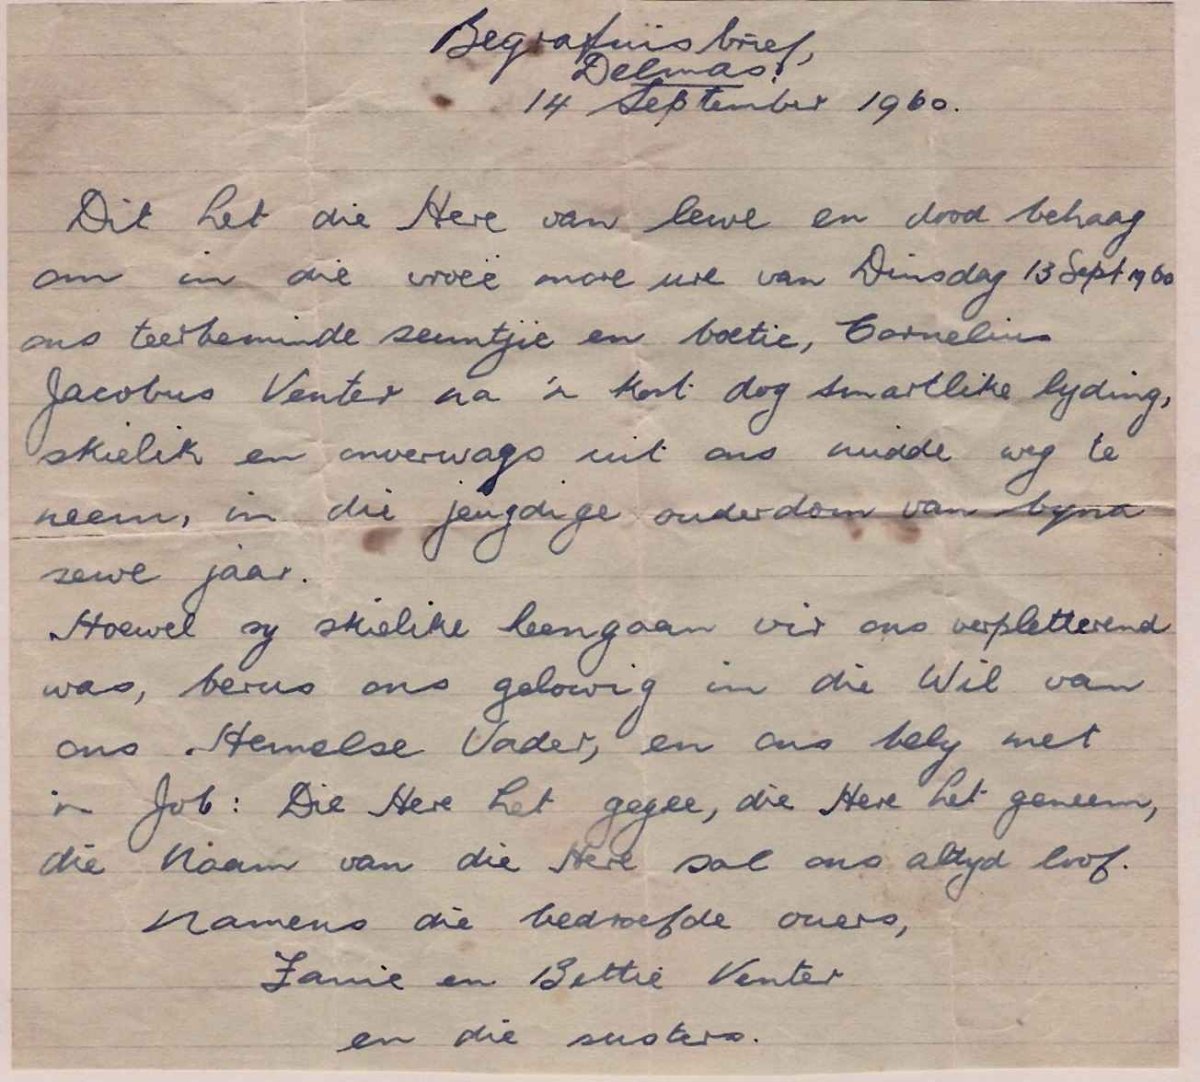 Begrafnisbrief,
Delmas.
14 September 1960.
Dit het die Here van lewe en dood behaag
om in die vroeë more ure van Dinsdag 13 Sept 1960
ons teerbeminde seuntjie en boetie, Cornelius
Jacobus Venter na 'n kort dog smartlike lyding,
skielik en onverwags uit ons midde weg te
neem, in die jeugdige ouderdom van byna
sewe jaar.
Hoewel sy skielike heengaan vir ons verpletterend
was, berus ons gelowig in die Wil van
ons Hemelse Vader, en ons bely met
'n Job: Die Here het gegee, die Here het geneem,
die Naam van die Here sal ons altyd loof.
Namens die bedroefde ouers,
en Bettie Venter
en die susters.